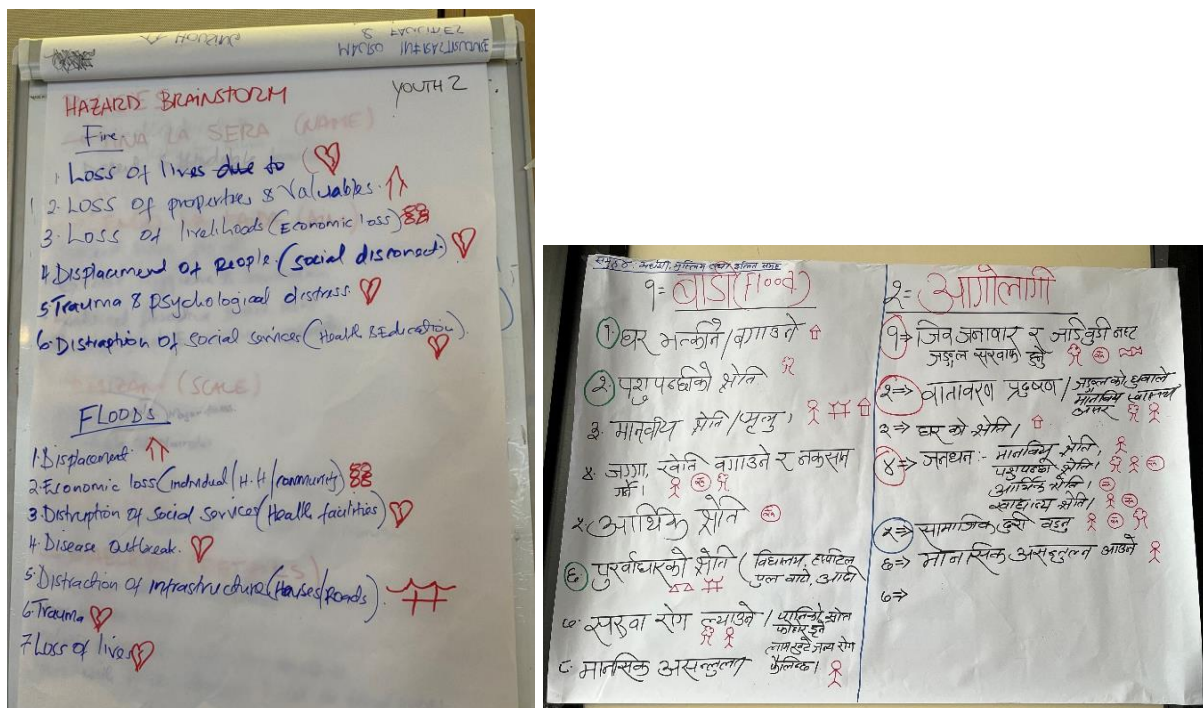 HAZARD BRAINSTORM
YOUTH 2
Fire
1 Loss of lives due to
2. Loss of properties & Valuables.
3. Loss of livelihoods (Economic loss)
4. Displacement of People. (social disconect)
5 Trauma & psychological distress
6. Distraption of social services (Health & Education)
FLOODS
1. Displacement.
2. Economic loss (individual / H.H / community)
3. Distruption of Social Services (Health facilities)
4. Disease Outbreak.
5. Distraction of infrastructure (Houses/Roads).
6. Trauma
7 Loss of lives
१= बाढी (Flood)
१. घर भत्कीने / बगाउने
२. पशुपंछीको क्षेति
३. मानवीय क्षेति / मृत्यु,
४. जग्गा, खेति बगाउने र नकसान
गर्ने।
५. आर्थिक क्षेति
६. पुर्वाधारको क्षेति ( विद्यालय, हस्पिटल
पुल बाटो, आदी
७. सरुवा रोग ल्याउने /
फैलिन्छ।
८. मानसिक असन्तुलन
२= आगोलागी
१⇒ जिव जनावार र जडिबुटी नष्ट
जङ्गल सखाप हुने
२⇒ वातावरण प्रदुषण / जङ्गलको धुवाले
मानविय स्वास्थ्य
असर
३⇒ घर को क्षेति।
४⇒ जनधन :- मानविय क्षेति,
पशुपंछी क्षेति।
आर्थिक क्षेति।
खाद्यान्न क्षेति।
५⇒ सामाजिक दुरी बढ्नु
६⇒ मानसिक असन्तुलन आउने
७⇒